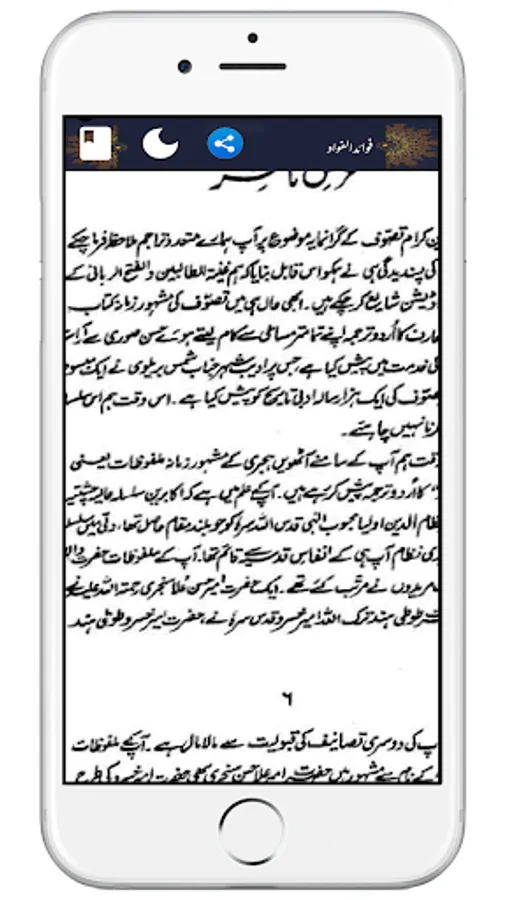 فوائد الفواد
عرض ناشر
کرام تصوف کے گرانمایہ موضوع پر آپ ہمارے متعدد تراجم ملاحظہ فرما چکے
کی پسندیدگی ہی نے ہمکو اس قابل بنایا کہ ہم غنیۃ الطالبین والفتح الربانی کے
شایع کر چکے ہیں۔ ابھی حال ہی میں تصوف کی مشہور زمانہ کتاب
کا اُردو ترجمہ اپنے تمامتر مساعی سے کام لیتے ہوئے حسن صوری سے
کی خدمت میں پیش کیا ہے، جس پر ادیب شہیر جناب شمس بریلوی نے ایک
تصوف کی ایک ہزار سالہ ادبی تاریخ کو پیش کیا ہے۔ اس وقت ہم اس
نہیں چاہتے۔
ہم آپ کے سامنے آٹھویں ہجری کے مشہور زمانہ ملفوظات یعنی
کا اُردو ترجمہ پیش کر رہے ہیں۔ آپکے علم میں ہے کہ اکابرین سلسلہ عالیہ چشتیہ
الدین اولیا محبوب الٰہی قدس اللہ سرہ کو جو بلند مقام حاصل تھا، دلی میں
نظام آپ ہی کے انفاس قدسیہ سے قائم تھا۔ آپ کے ملفوظات حضرت
مریدوں نے مرتب کئے تھے۔ ایک حضرت امیر حسن علا سنجری رحمتہ اللہ علیہ نے
طوطی ہند ترک اللہ امیر خسرو قدس سرہ نے، حضرت امیر خسرو طوطی ہند
۶
کی دوسری تصانیف کی قبولیت سے مالا مال ہے۔ آپکے ملفوظات
کے نام سے مشہور ہیں حضرت امیر علا حسن سنجری بھی حضرت امیر خسرو کی طرح